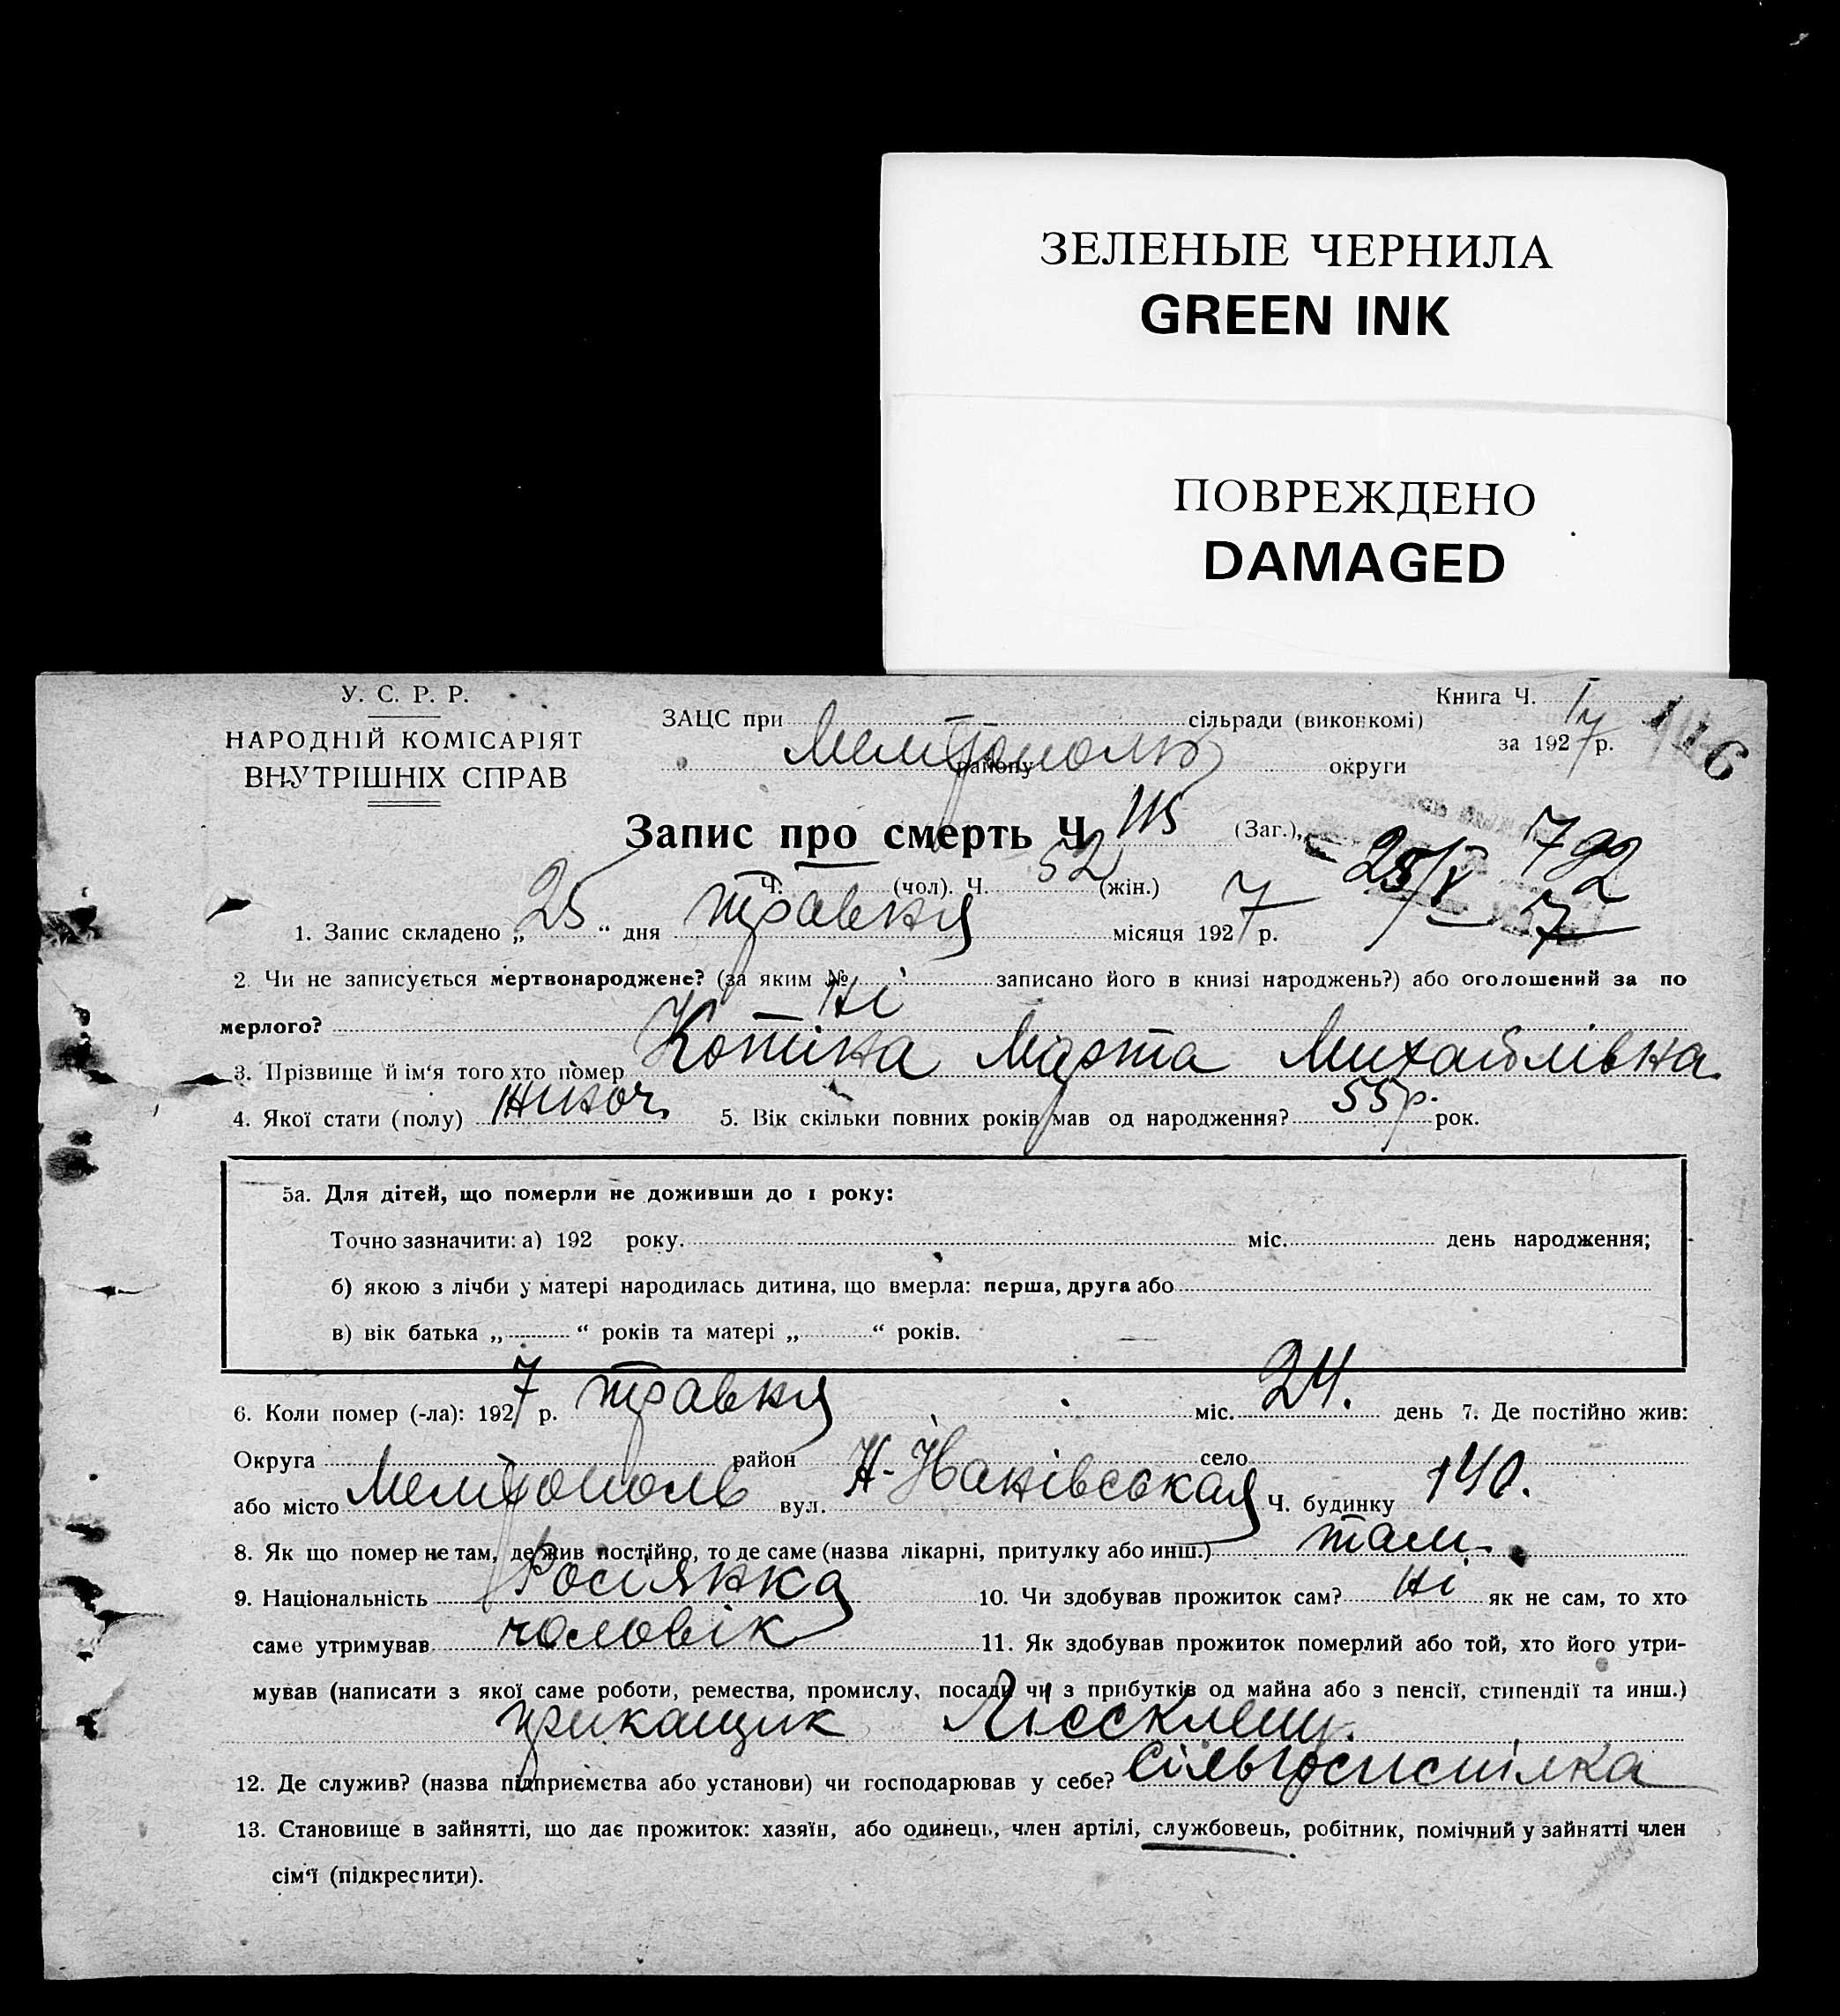 ЗЕЛЕНЫЕ ЧЕРНИЛА
GREEN INK
ПОВРЕЖДЕНО
DAMAGED
У. С. Р. Р.
НАРОДНІЙ КОМІСАРІЯТ
ВНУТРІШНІХ СПРАВ
Книга Ч.
за 1927 р.
ЗАЦС при сільради (виконкомі)
Мелітополь району округи
Запис про смерть Ч 115 (Заг.),
Ч. (чол). Ч. 52 (жін.)
25/V 792
7
1. Запис складено „25“ дня травня місяця 1927 р.
2. Чи не записується мертвонароджене? (за яким № записано його в книзі народжень?) або оголошений за по
мерлого? Ні
3. Прізвище й ім‘я того хто помер Котіна Марта Михайлівна
4. Якої стати (полу) жиноч. 5. Вік скільки повних років мав од народження? 55 р. рок.
5а. Для дітей, що померли не доживши до 1 року:
Точно зазначити: а) 192 року. міс. день народження;
б) якою з лічби у матері народилась дитина, що вмерла: перша, друга або
в) вік батька „ “ років та матері „ “ років.
6. Коли помер (-ла): 1927 р. травня міс. 24. день 7. Де постійно жив:
Округа район село
або місто Мелітополь вул. Ч. будинку 140.
8. Як що помер не там, де жив постійно, то де саме (назва лікарні, притулку або инш.) там
9. Національність Росіянка 10. Чи здобував прожиток сам? Ні як не сам, то хто
саме утримував чоловік 11. Як здобував прожиток померлий або той, хто його утри-
мував (написати з якої саме роботи, ремества, промислу, посади чи з прибутків од майна або з пенсії, стипендії та инш.)
прикащик
12. Де служив? (назва підприємства або установи) чи господарював у себе?
13. Становище в зайнятті, що дає прожиток: хазяїн, або одинець, член артілі, службовець, робітник, помічний у зайнятті член
сім‘ї (підкреслити).